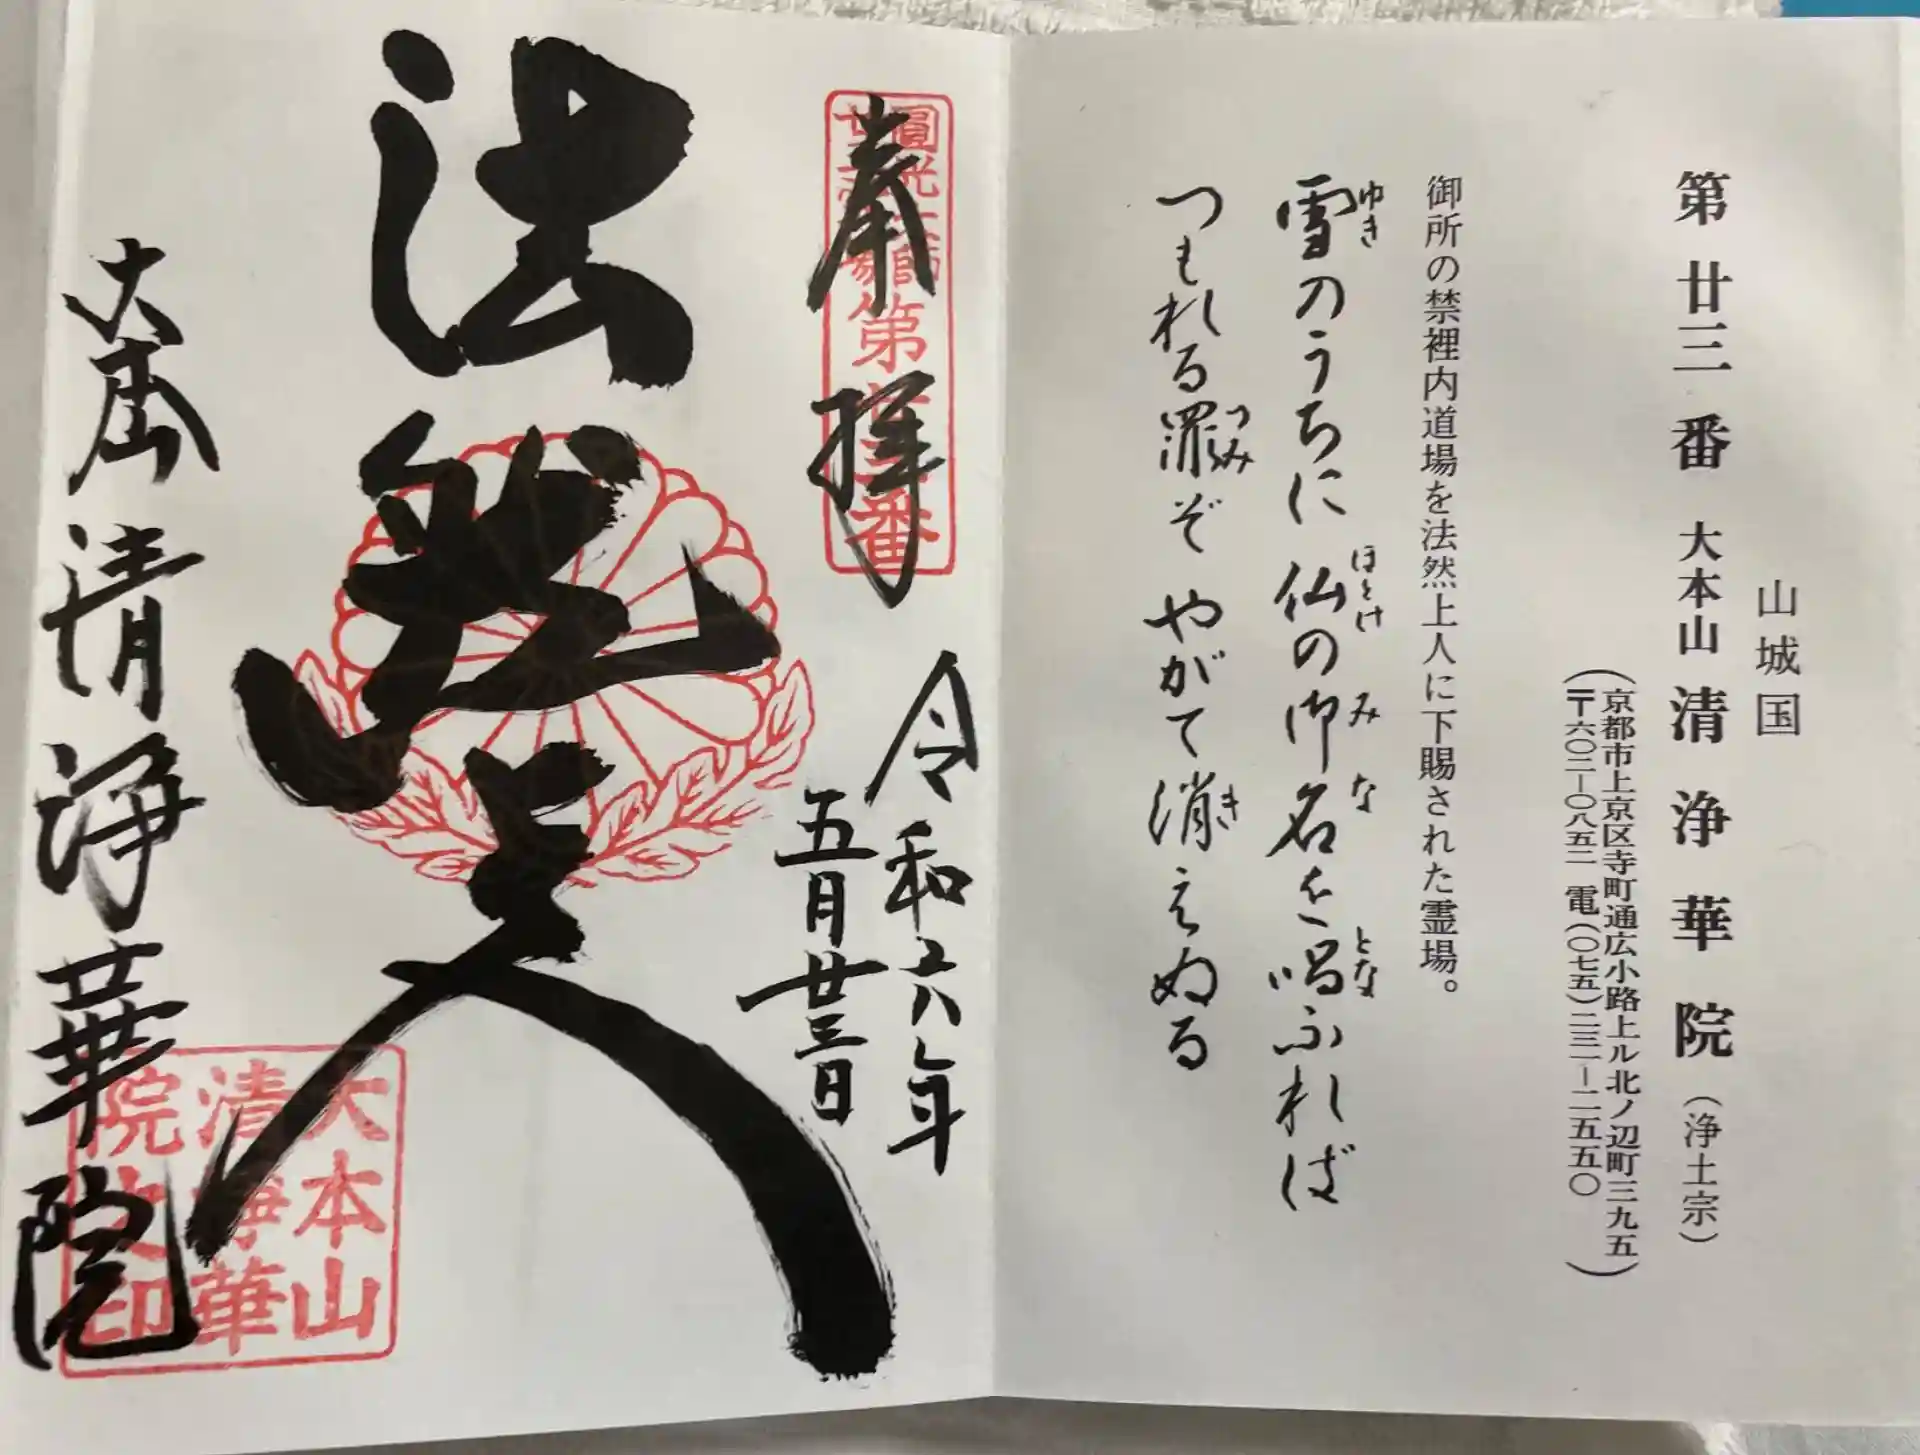 山城国
第廿三番 大本山 清浄華院（浄土宗）
（京都市上京区寺町通広小路上ル北ノ辺町三九五
〒六〇二－〇八五二 電（〇七五）二三一－二五五〇）
御所の禁裡内道場を法然上人に下賜された霊場。
雪のうちに 仏の御名を唱ふれば
ゆき ほとけ みな とな
つもれる罪ぞ やがて消えぬる
つみ き
奉拝
圓光大師
第廿三番
令和六年
五月廿三日
法然上人
大本山 清浄華院
大本山
清浄華
院之印